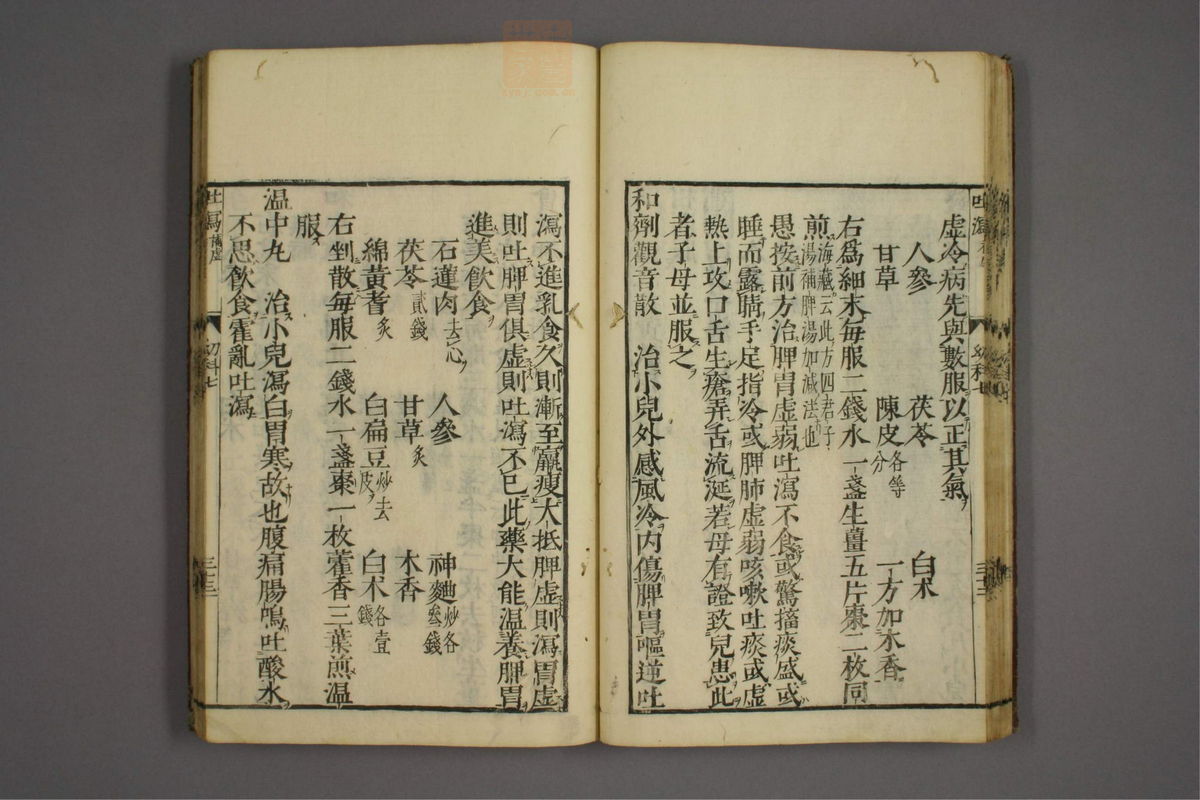 虛冷病先與數服以正其氣
人參 茯苓 白朮
甘草 陳皮各等分 一方加木香
右爲細末每服二錢水一盞生薑五片棗二枚同
煎海藏云此方四君子湯補脾湯加減法也
愚按前方治脾胃虛弱吐瀉不食或驚搐痰盛或
睡而露睛手足指冷或脾肺虛弱咳嗽吐痰或虛
熱上攻口舌生瘡弄舌流涎若母有證致兒患此
者子母並服之
和劑觀音散 治小兒外感風冷內傷脾胃嘔逆吐
瀉不進乳食久則漸至羸瘦大抵脾虛則瀉胃虛
則吐脾胃俱虛則吐瀉不已此藥大能溫養脾胃
進美飲食
石蓮肉去心 人參 神麯炒各叄錢
茯苓貳錢 甘草炙 木香
綿黃耆炙 白扁豆炒去皮 白朮各壹錢
右剉散每服二錢水一盞棗一枚藿香三葉煎溫
服
溫中丸 治小兒瀉白胃寒故也腹痛腸鳴吐酸水
不思飲食霍亂吐瀉
吐瀉補虛 幼科七 三十三